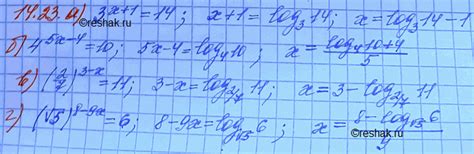 14.23. а) 3^(x+1) = 14; x+1 = log_3 14; x = log_3 14 - 1
б) 4^(5x-4) = 10; 5x-4 = log_4 10; x = (log_4 10 + 4)/5
в) (2/7)^(3-x) = 11; 3-x = log_(2/7) 11; x = 3 - log_(2/7) 11
г) (√5)^(8-9x) = 6; 8-9x = log_√5 6; x = (8 - log_√5 6)/9
©reshak.ru ©reshak.ru